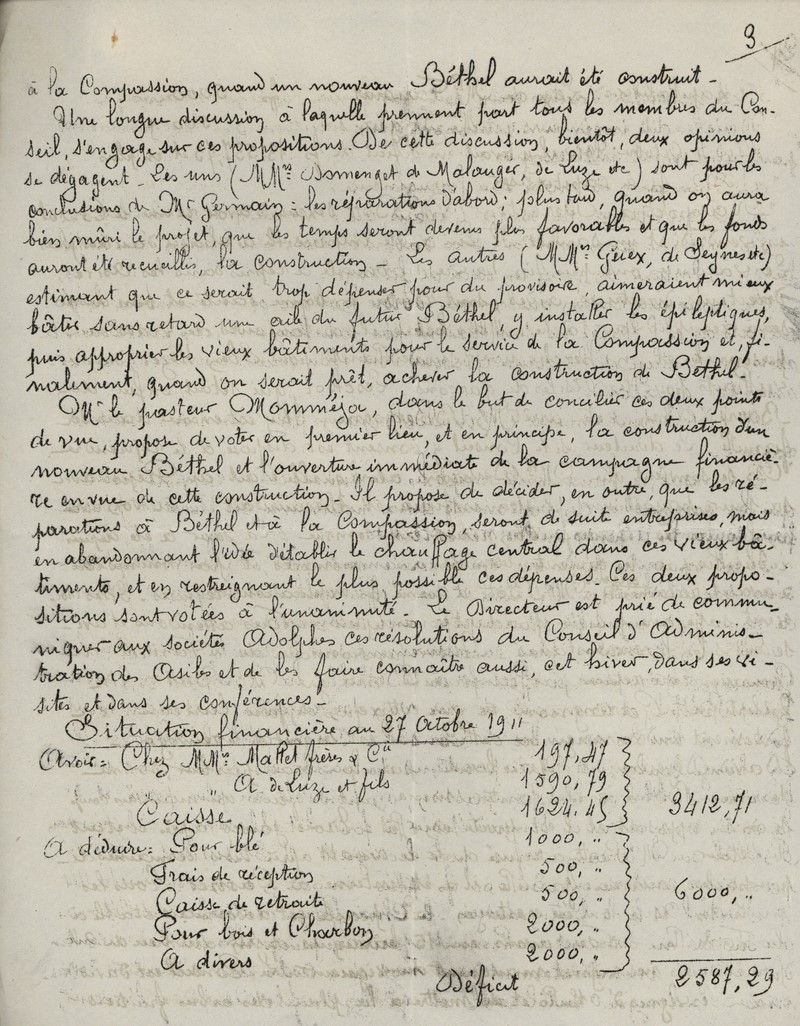 3
à la Compassion, quand un nouveau Béthel aurait été construit -
Une longue discussion à laquelle prennent part tous les membres du Con-
seil, s'engage sur ces propositions. De cette discussion, bientôt, deux opinions
se dégagent - Les uns (MMrs de Malauger, de Luze etc) sont pour les
conclusions de Mr Germain : les réparations d'abord; plus tard, quand on aura
bien mûri le projet, que les temps seront devenus plus favorables et que les fonds
auront été recueillis, la construction - Les autres (MMrs Guex, de Seynes etc)
estimant que ce serait trop dépenser pour du provisoire, aimeraient mieux
bâtir sans retard une aile du futur Béthel, y installer les épileptiques,
puis approprier les vieux bâtiments pour le service de la Compassion et, fi-
nalement, quand on serait prêt, achever la construction de Béthel.
Mr le pasteur Momméja, dans le but de concilier ces deux points
de vue, propose de voter en premier lieu, et en principe, la construction d'un
nouveau Béthel et l'ouverture immédiate de la campagne financiè-
re en vue de cette construction - Il propose de décider, en outre, que les ré-
parations à Béthel et à la Compassion, seront de suite entreprises, mais
en abandonnant l'idée d'établir le chauffage central dans ces vieux bâ-
timents, et en restreignant le plus possible ces dépenses. Ces deux propo-
sitions sont votées à l'unanimité - Le Directeur est prié de commu-
niquer aux sociétés Adolphes ces résolutions du Conseil d'Adminis-
tration des Asiles et de les faire connaître aussi, cet hiver, dans ses vi-
sites et dans ses conférences -
Situation financière au 27 Octobre 1911
Avoir = Chez MMrs Mallet frères & Cie 197,47
" " A de Luze et fils 1590,79
Caisse 1624,45 3412,71
A déduire = Pour blé 1000, "
Frais de réception 500, "
Caisse de retraite 500, " 6000, "
Pour bois et Charbon 2000, "
A divers 2000, "
Déficit 2587,29